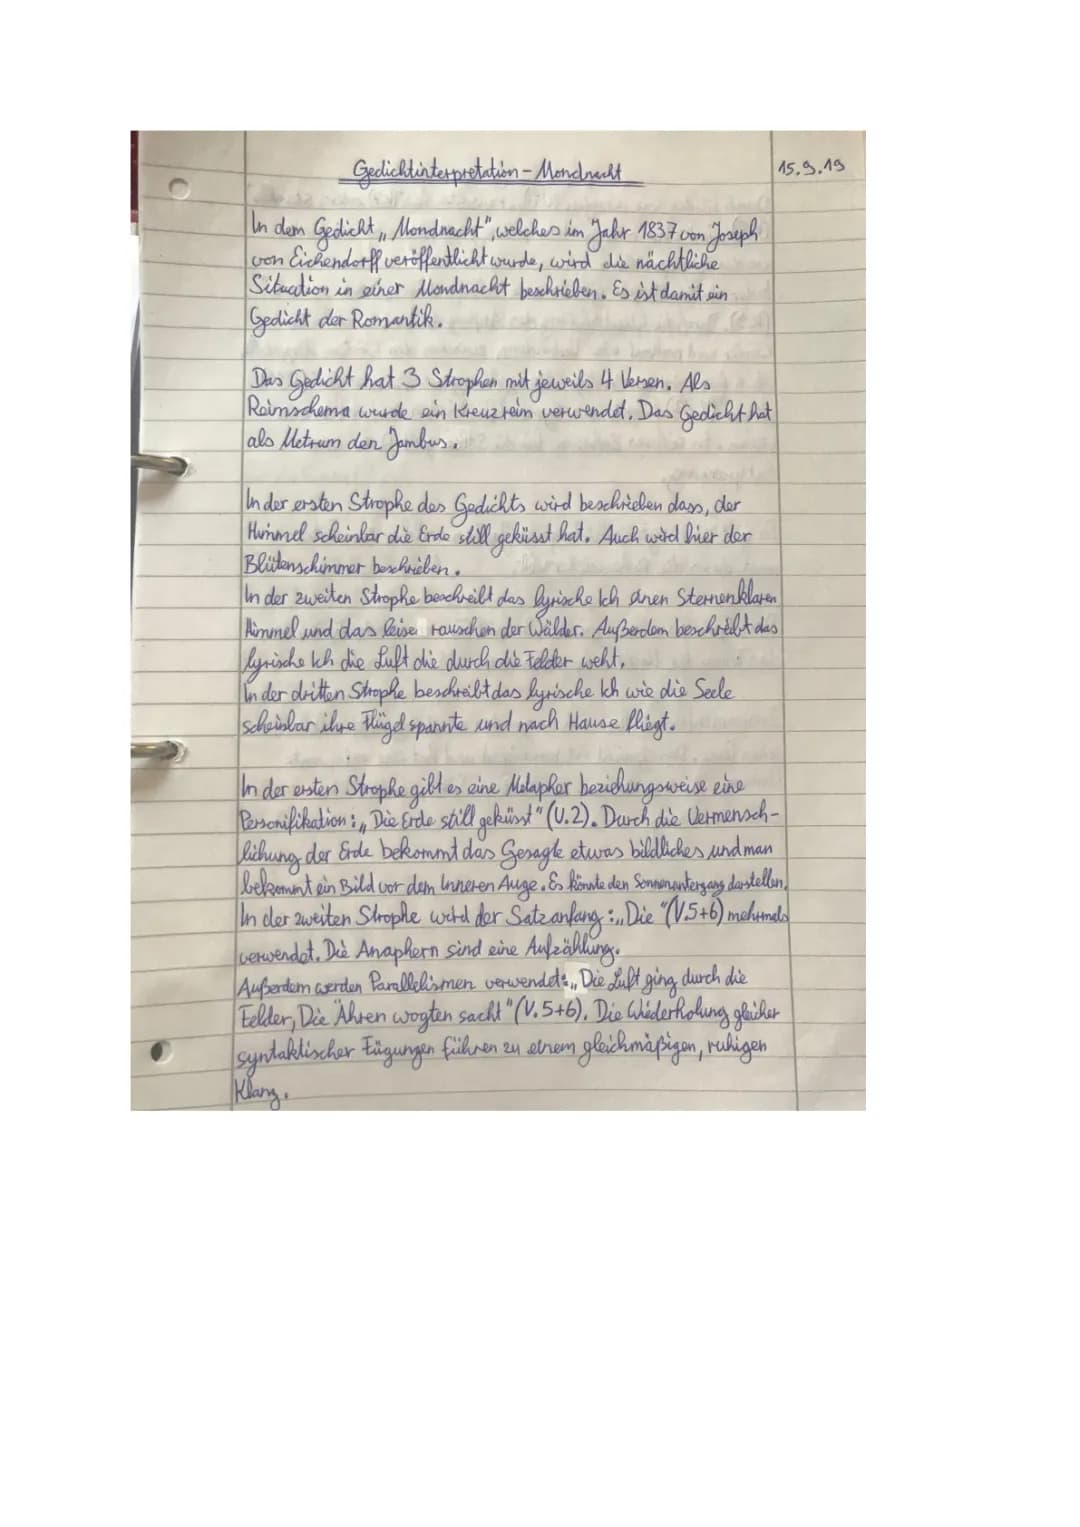 Gedichtinterpretation - Mondnacht
15.9.19
In dem Gedicht „Mondnacht", welches im Jahr 1837 von Joseph
von Eichendorff veröffentlicht wurde, wird die nächtliche
Situation in einer Mondnacht beschrieben. Es ist damit ein
Gedicht der Romantik.
Das Gedicht hat 3 Strophen mit jeweils 4 Versen. Als
Reimschema wurde ein Kreuzreim verwendet. Das Gedicht hat
als Metrum den Jambus.
In der ersten Strophe des Gedichts wird beschrieben dass, der
Himmel scheinbar die Erde still geküsst hat. Auch wird hier der
Blütenschimmer beschrieben.
In der zweiten Strophe beschreibt das lyrische Ich einen Sternenklaren
Himmel und das leise rauschen der Wälder. Außerdem beschreibt das
lyrische Ich die Luft die durch die Felder weht.
In der dritten Strophe beschreibt das lyrische Ich wie die Seele
scheinbar ihre Flügel spannte und nach Hause fliegt.
In der ersten Strophe gibt es eine Metapher beziehungsweise eine
Personifikation: „Die Erde still geküsst" (V.2). Durch die Vermensch-
lichung der Erde bekommt das Gesagte etwas bildliches und man
bekommt ein Bild vor dem Inneren Auge. Es könnte den Sonnenuntergang darstellen.
In der zweiten Strophe wird der Satzanfang: „Die" (V.5+6) mehrmals
verwendet. Die Anaphern sind eine Aufzählung.
Außerdem werden Parallelismen verwendet: „Die Luft ging durch die
Felder, Die Ähren wogten sacht" (V.5+6). Die Wiederholung gleicher
syntaktischer Fügungen führen zu einem gleichmäßigen, ruhigen
Klang.